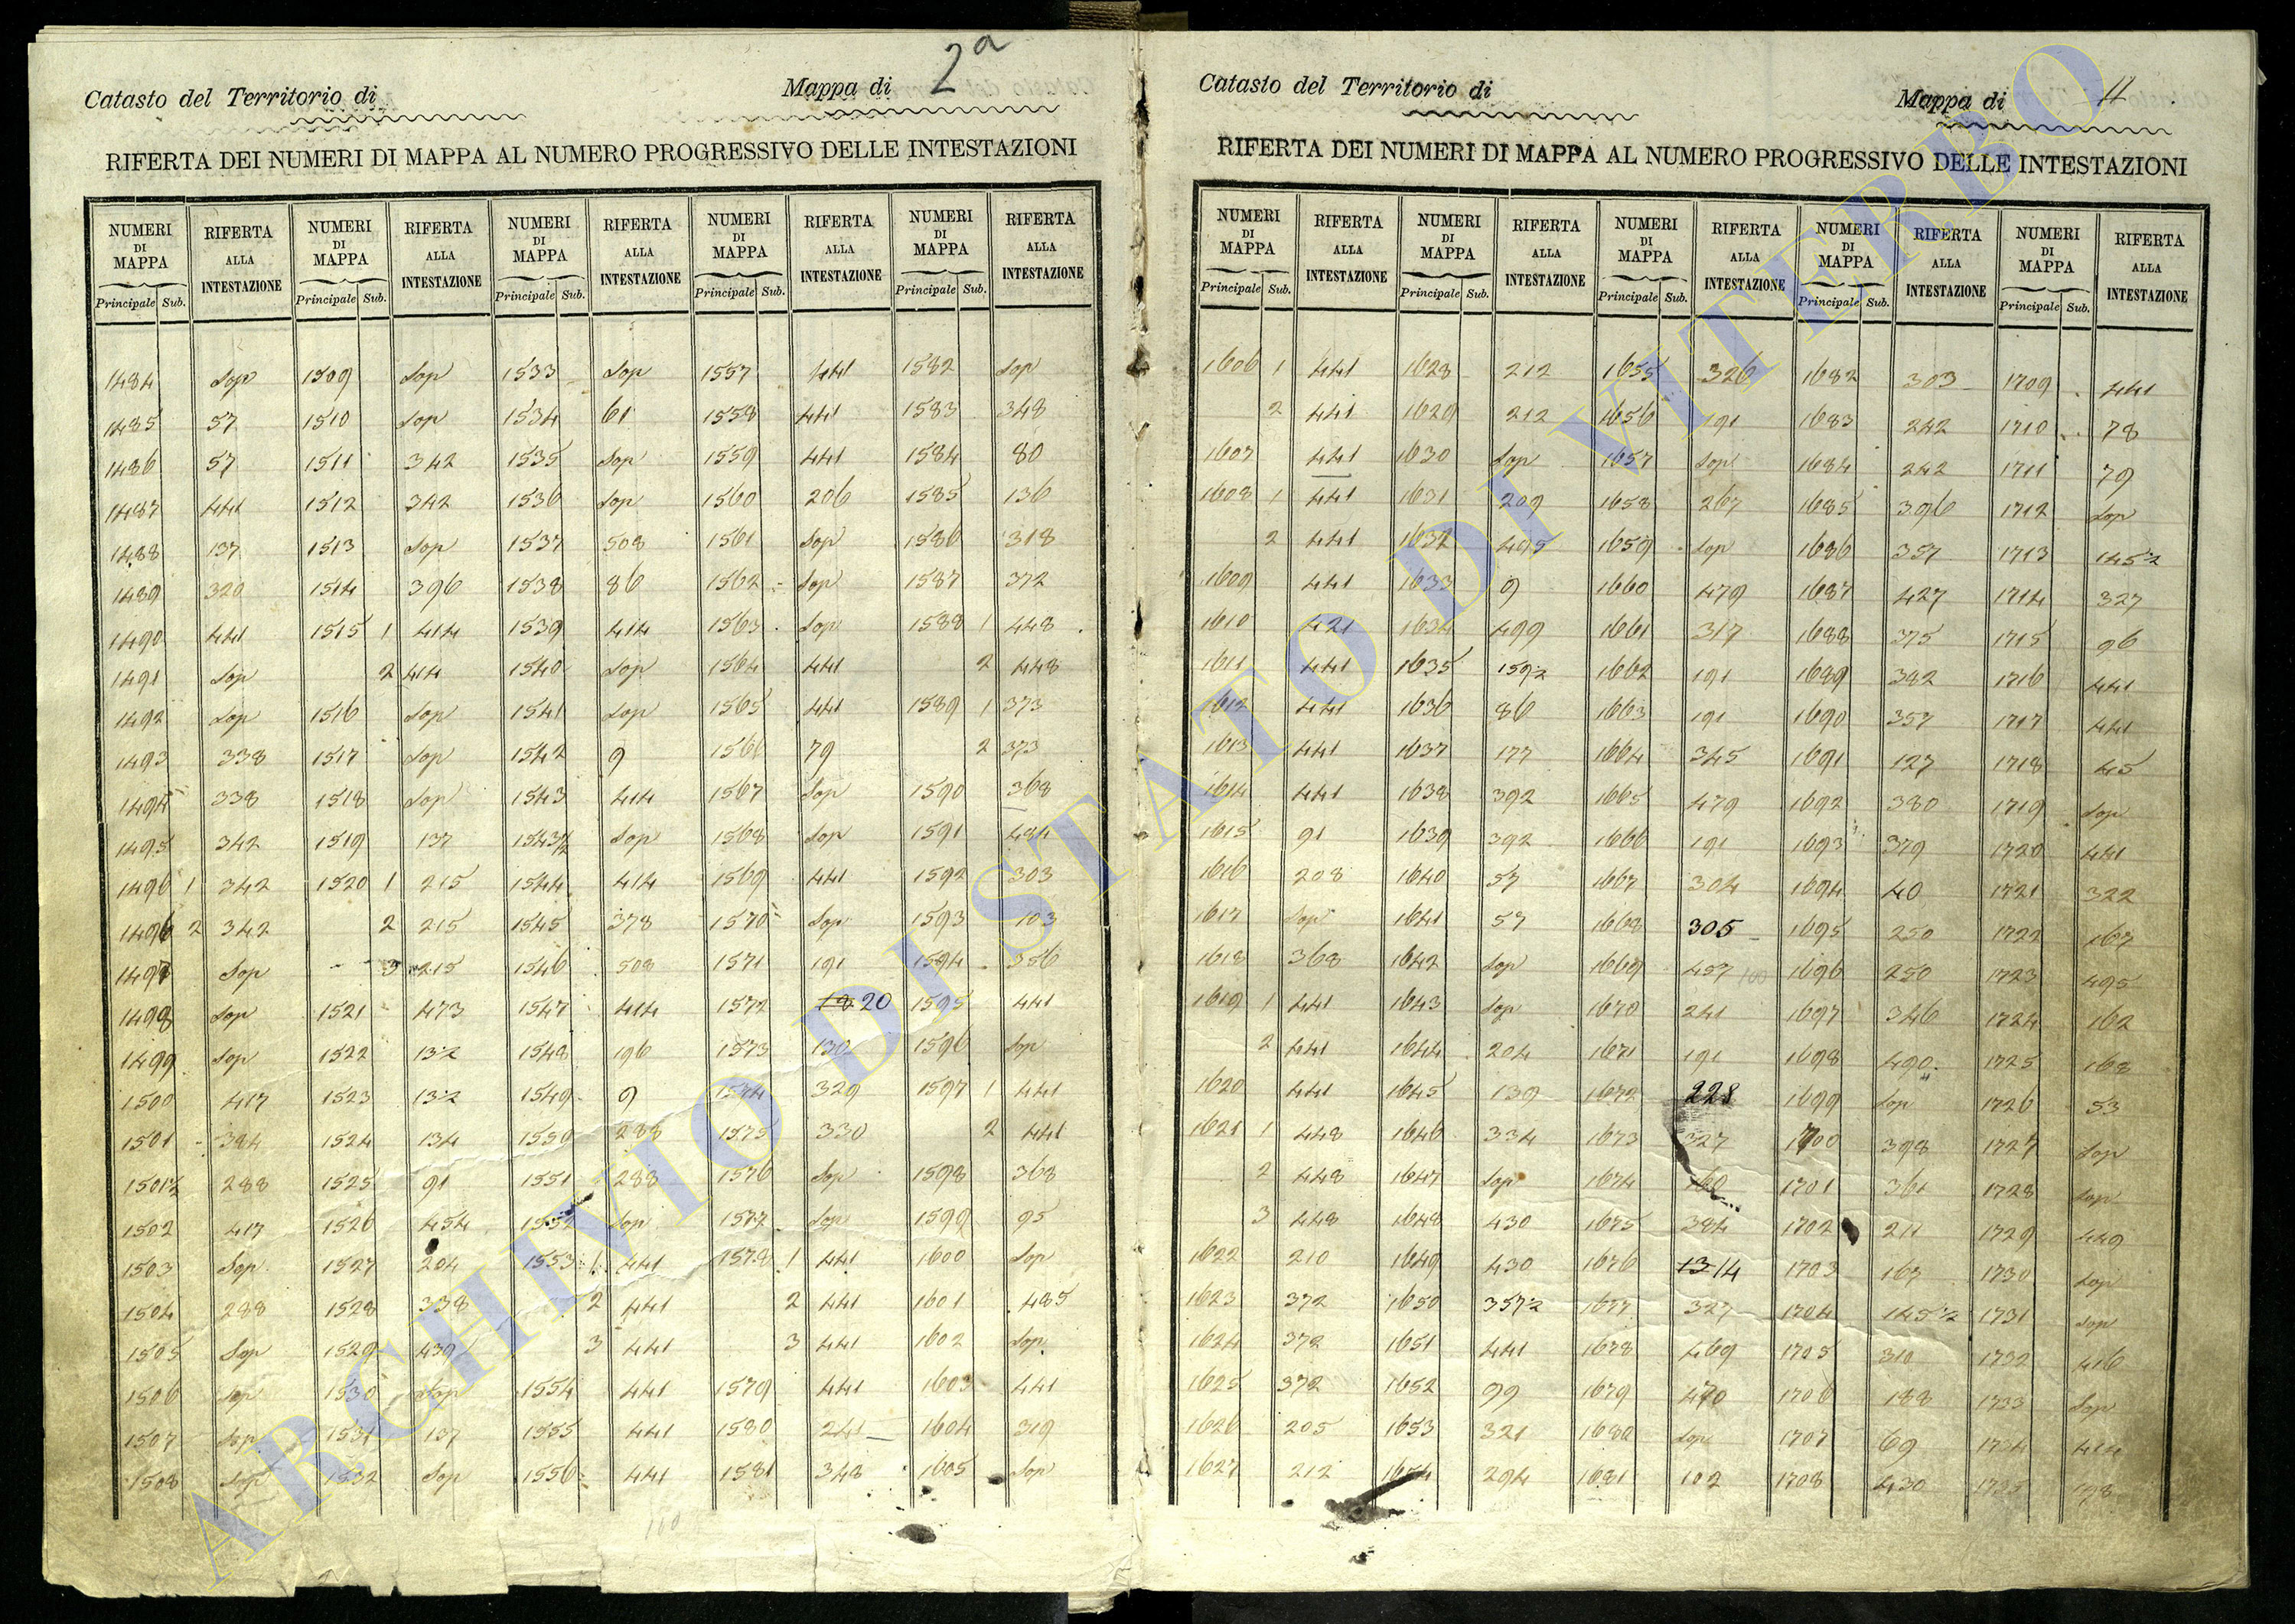 Catasto del Territorio di Mappa di 2ª
RIFERTA DEI NUMERI DI MAPPA AL NUMERO PROGRESSIVO DELLE INTESTAZIONI
NUMERI DI MAPPA RIFERTA ALLA INTESTAZIONE NUMERI DI MAPPA RIFERTA ALLA INTESTAZIONE NUMERI DI MAPPA RIFERTA ALLA INTESTAZIONE NUMERI DI MAPPA RIFERTA ALLA INTESTAZIONE NUMERI DI MAPPA RIFERTA ALLA INTESTAZIONE
Principale Sub. Principale Sub. Principale Sub. Principale Sub. Principale Sub.
1484 Sop 1509 Sop 1533 Sop 1557 441 1582 Sop
1485 57 1510 Sop 1534 61 1558 441 1583 348
1486 57 1511 342 1535 Sop 1559 441 1584 80
1487 441 1512 342 1536 Sop 1560 206 1585 136
1488 137 1513 Sop 1537 508 1561 Sop 1586 318
1489 320 1514 396 1538 86 1562 Sop 1587 372
1490 441 1515 1 414 1539 414 1563 Sop 1588 1 448
1491 Sop 2 414 1540 Sop 1564 441 2 448
1492 Sop 1516 Sop 1541 Sop 1565 441 1589 1 373
1493 338 1517 Sop 1542 9 1566 79 2 373
1494 338 1518 Sop 1543 414 1567 Sop 1590 368
1495 342 1519 137 1543½ Sop 1568 Sop 1591 484
1496 1 342 1520 1 215 1544 414 1569 441 1592 303
1496 2 342 2 215 1545 378 1570 Sop 1593 103
1497 Sop 3 215 1546 508 1571 191 1594 356
1498 Sop 1521 473 1547 414 1572 20 1595 441
1499 Sop 1522 132 1548 196 1573 130 1596 Sop
1500 417 1523 132 1549 9 1574 329 1597 1 441
1501 384 1524 134 1550 288 1575 330 2 441
1501½ 288 1525 91 1551 288 1576 Sop 1598 368
1502 417 1526 454 1552 Sop 1577 Sop 1599 95
1503 Sop 1527 204 1553 1 441 1578 1 441 1600 Sop
1504 288 1528 338 2 441 2 441 1601 485
1505 Sop 1529 439 3 441 3 441 1602 Sop
1506 Sop 1530 Sop 1554 441 1579 441 1603 441
1507 Sop 1531 137 1555 441 1580 241 1604 319
1508 Sop 1532 Sop 1556 441 1581 348 1605 Sop
100
Catasto del Territorio di Mappa di 11
RIFERTA DEI NUMERI DI MAPPA AL NUMERO PROGRESSIVO DELLE INTESTAZIONI
NUMERI DI MAPPA RIFERTA ALLA INTESTAZIONE NUMERI DI MAPPA RIFERTA ALLA INTESTAZIONE NUMERI DI MAPPA RIFERTA ALLA INTESTAZIONE NUMERI DI MAPPA RIFERTA ALLA INTESTAZIONE NUMERI DI MAPPA RIFERTA ALLA INTESTAZIONE
Principale Sub. Principale Sub. Principale Sub. Principale Sub. Principale Sub.
1606 1 441 1628 212 1655 326 1682 303 1709 441
2 441 1629 212 1656 191 1683 242 1710 78
1607 441 1630 Sop 1657 Sop 1684 242 1711 79
1608 1 441 1631 209 1658 267 1685 396 1712 Sop
2 441 1632 495 1659 Sop 1686 357 1713 145½
1609 441 1633 9 1660 479 1687 427 1714 327
1610 421 1634 499 1661 317 1688 375 1715 96
1611 441 1635 159½ 1662 191 1689 382 1716 441
1612 441 1636 86 1663 191 1690 357 1717 441
1613 441 1637 177 1664 345 1691 127 1718 45
1614 441 1638 392 1665 479 1692 380 1719 Sop
1615 91 1639 392 1666 191 1693 379 1720 441
1616 208 1640 57 1667 304 1694 40 1721 322
1617 Sop 1641 57 1668 305 1695 250 1722 167
1618 368 1642 Sop 1669 457 100 1696 250 1723 495
1619 1 441 1643 Sop 1670 241 1697 346 1724 162
2 441 1644 204 1671 191 1698 490 1725 168
1620 441 1645 139 1672 228 1699 Sop 1726 53
1621 1 448 1646 334 1673 327 1700 398 1727 Sop
2 448 1647 Sop 1674 160 1701 361 1728 Sop
3 448 1648 430 1675 384 1702 211 1729 449
1622 210 1649 430 1676 13 14 1703 167 1730 Sop
1623 372 1650 357½ 1677 327 1704 145½ 1731 Sop
1624 372 1651 441 1678 469 1705 310 1732 416
1625 372 1652 99 1679 470 1706 188 1733 Sop
1626 205 1653 321 1680 Sop 1707 69 1734 414
1627 212 1654 294 1681 102 1708 430 1735 198
ARCHIVIO DI STATO DI VITERBO